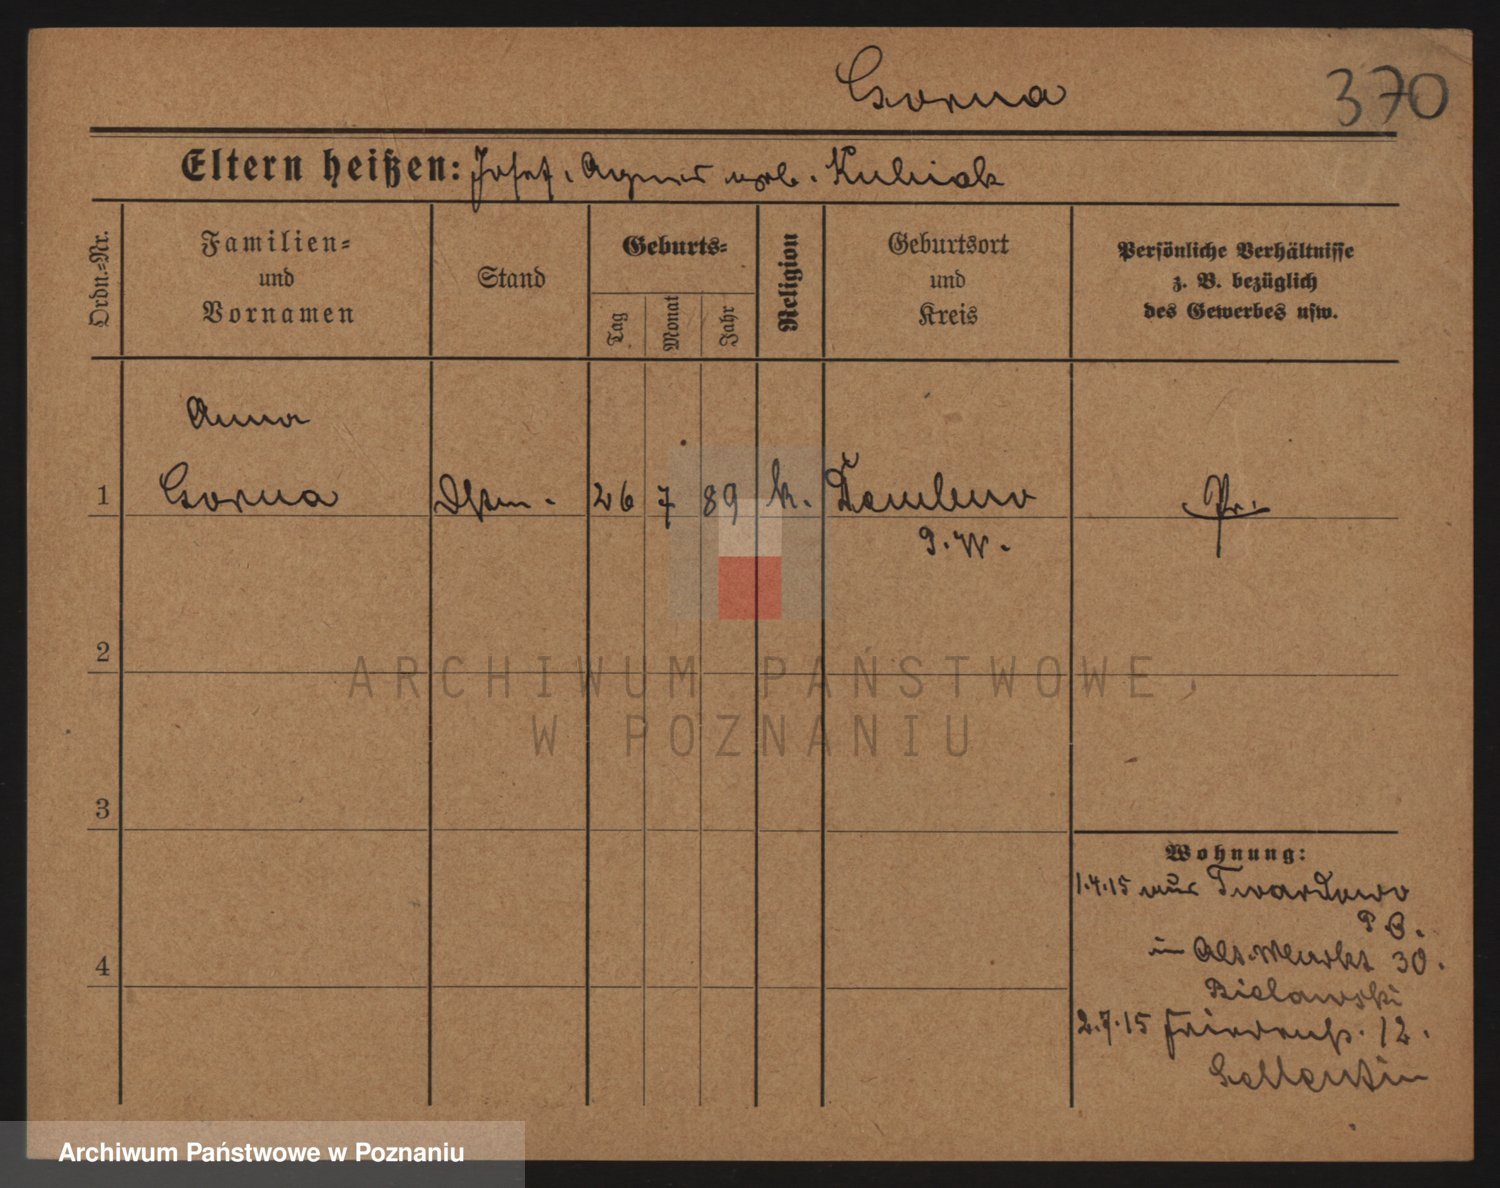 Gorna
370
Eltern heißen: Josef, Agnes geb. Kubiak
Ordn.=Nr.
Familien=
und
Vornamen
Stand
Geburts=
Tag
Monat
Jahr
Religion
Geburtsort
und
Kreis
Persönliche Verhältnisse
z. B. bezüglich
des Gewerbes usw.
Anna
1 Gorna Dstm. 26 7 89 k. Dembno Pr.
P. W.
2
3
4
Wohnung:
1.4.15 aus Twardowo
P B.
in Alt. Markt 30.
Bielawski
2.7.15 12.
ARCHIWUM PAŃSTWOWE
W POZNANIU
Archiwum Państwowe w Poznaniu